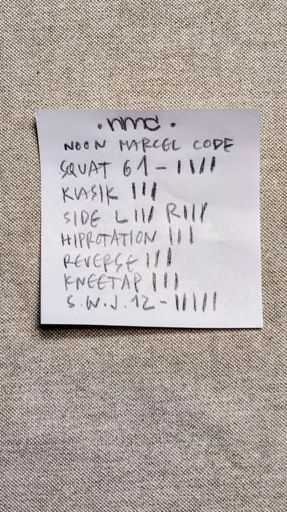 • nmc •
NOON MARCEL CODE
SQUAT 61 - IIII
KLASIK III
SIDE L III R III
HIPROTATION III
REVERSE III
KNEETAP III
S.W.J. 12 - IIIII